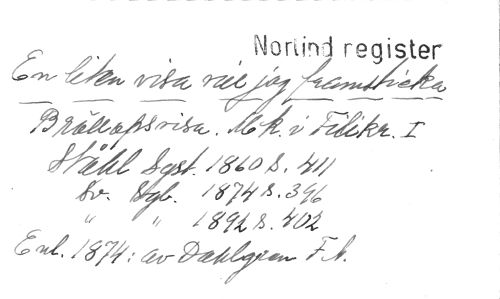 Norlind register
En liten visa vill jag framskicka
Bröllopsvisa. Mk. i Filikr. I
Ståhl Sgst. 1860 s. 411
Sv. Sgb. 1874 s. 396
" " 1892 s. 402
Enl. 1874: av Dahlgren F.A.